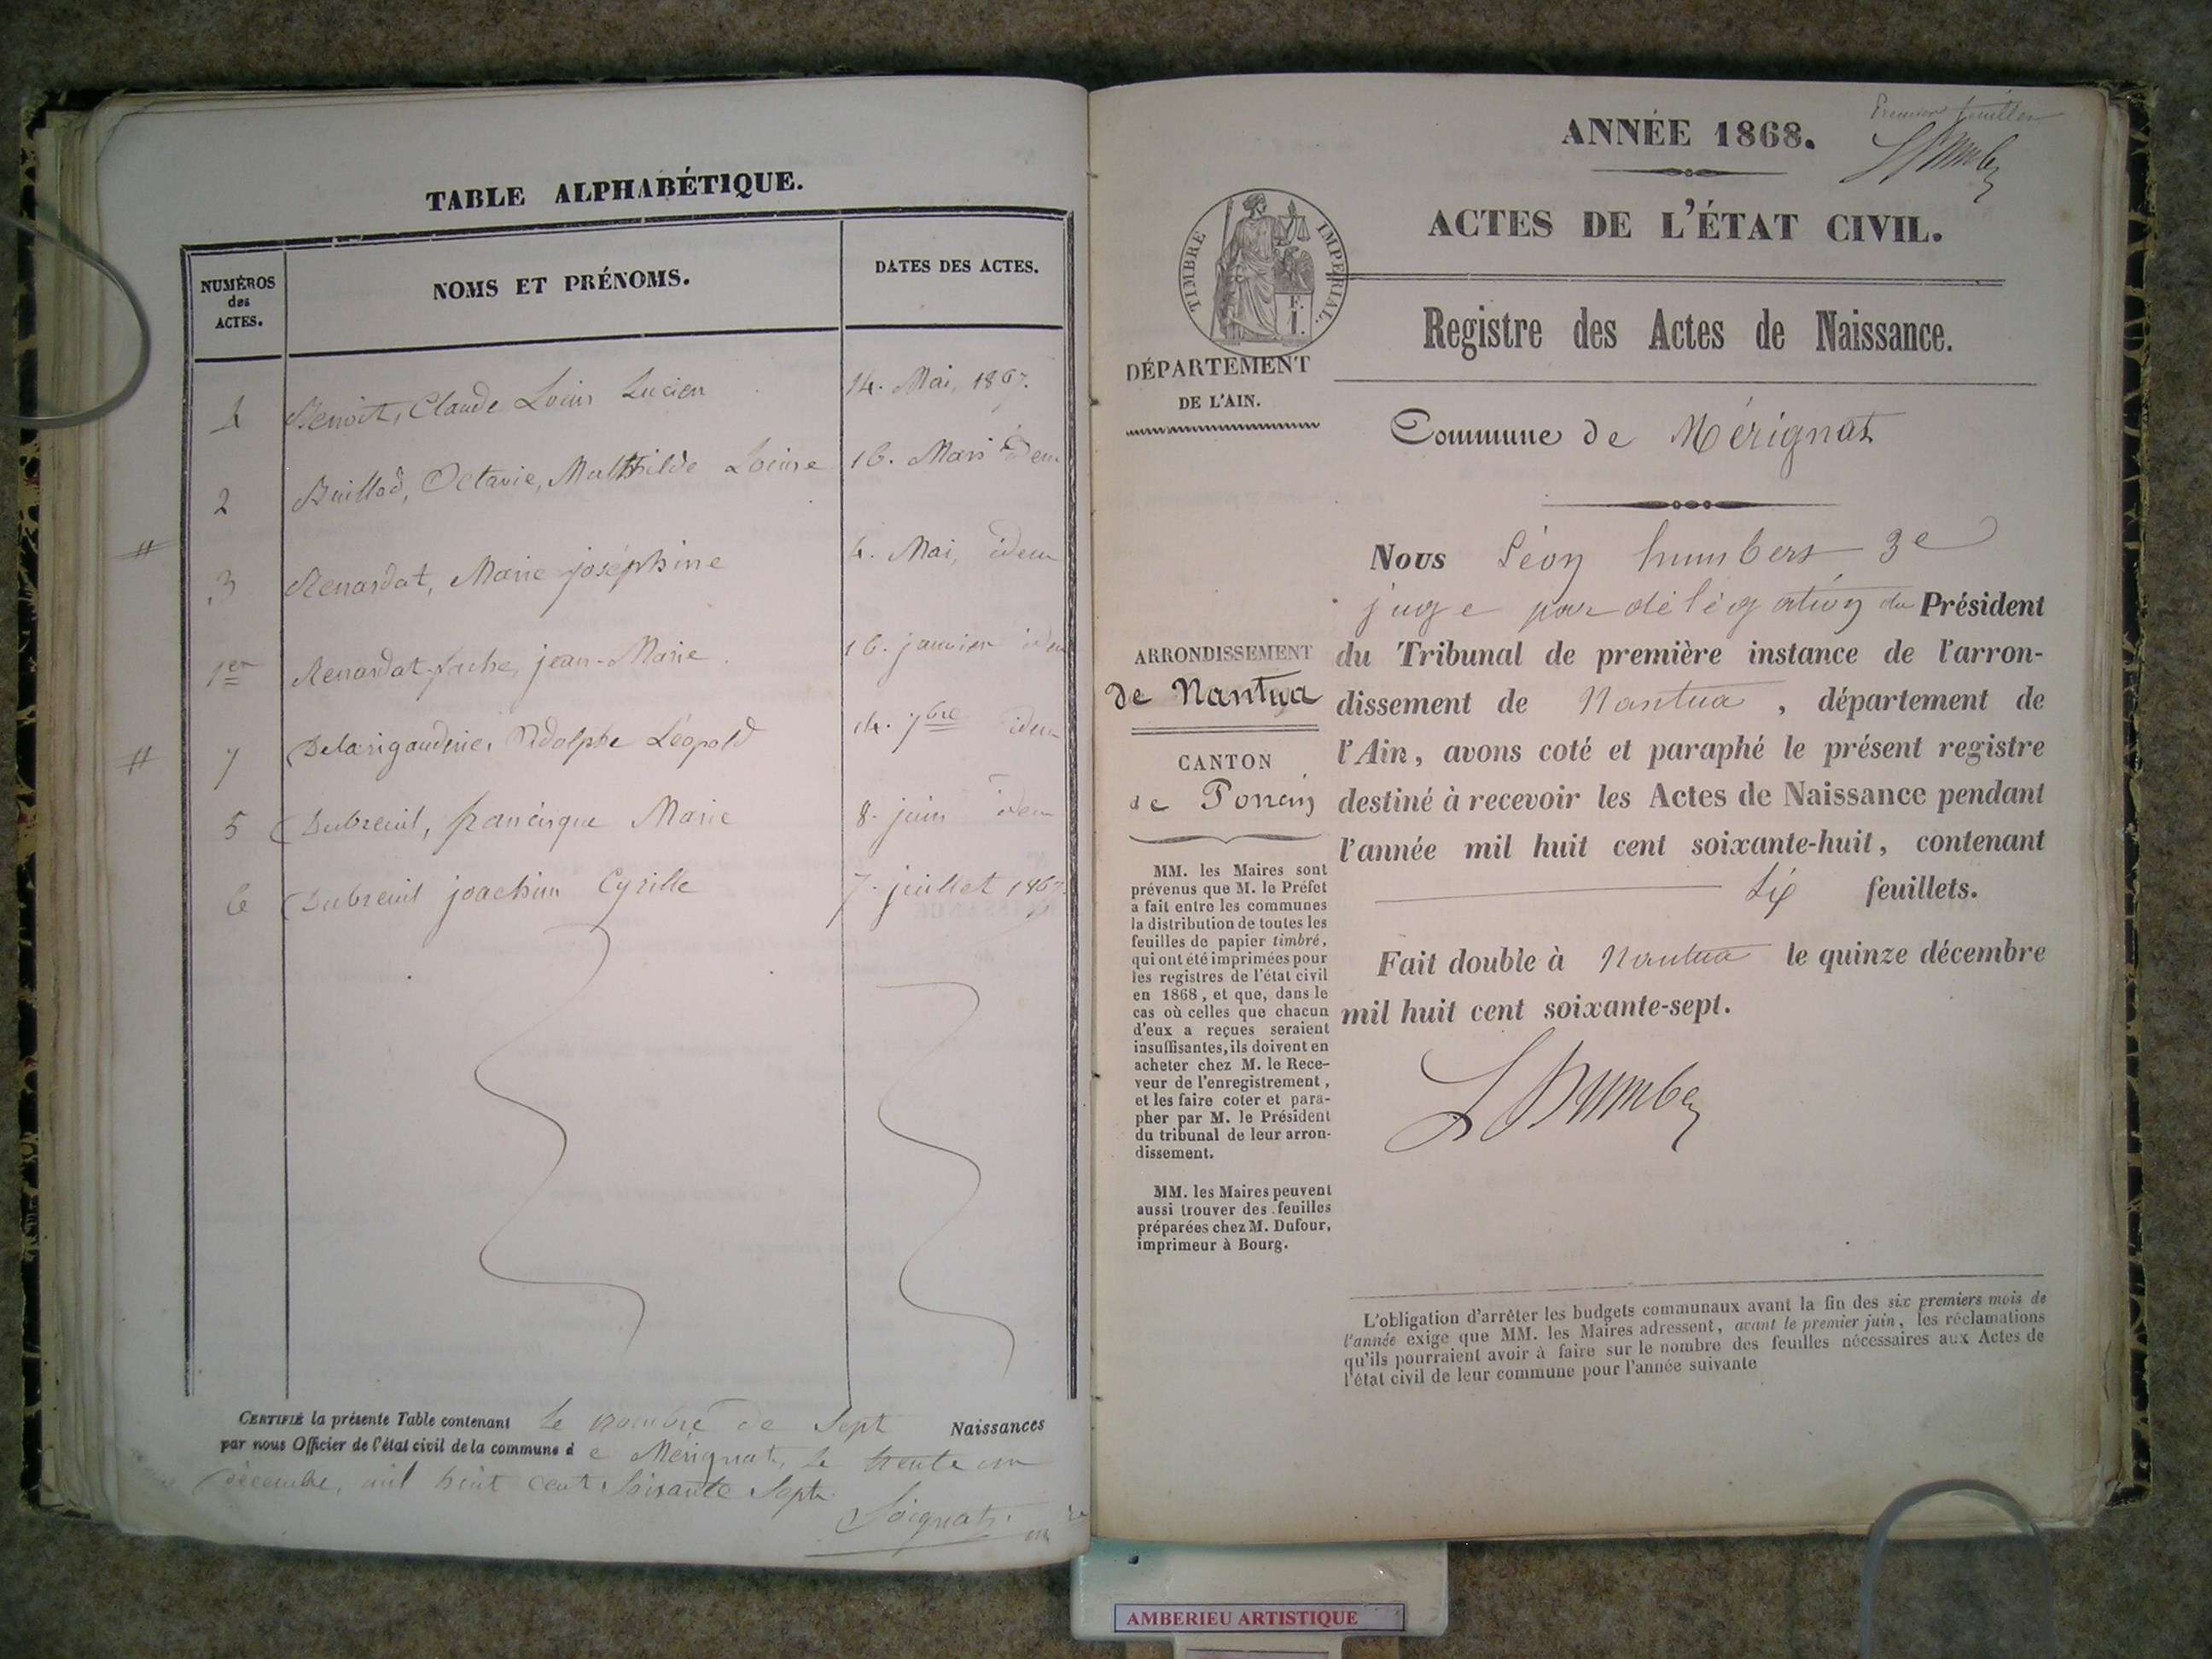 TABLE ALPHABÉTIQUE.
NUMÉROS
des
ACTES.
NOMS ET PRÉNOMS.
DATES DES ACTES.
Benoit, Claude Louis Lucien 14. Mai, 1867.
2 Buillod, Octavie, Mathilde Louise 16. Mars idem
3 Renardat, Marie joséphine 4. Mai, idem
1er Renardat-fache, jean-Marie 16. janvier idem
7 Delarigauderie, Adolphe Léopold 14. 7bre idem
5 Dubreuil, francisque Marie 8. juin idem
6 Dubreuil joachim Cyrille 7. juillet 1867.
CERTIFIÉ la présente Table contenant le nombre de Sept Naissances
par nous Officier de l'état civil de la commune de Mérignat, le trente un
décembre, mil huit cent Soixante Sept
Soignat.
Premier feuillet
ANNÉE 1868.
ACTES DE L'ÉTAT CIVIL.
TIMBRE IMPERIAL.
F.
1.
Registre des Actes de Naissance.
DÉPARTEMENT
DE L'AIN.
Commune de Mérignat
Nous Léon humbert 3e
juge par délégation du Président
du Tribunal de première instance de l'arron-
dissement de Nantua, département de
l'Ain, avons coté et paraphé le présent registre
destiné à recevoir les Actes de Naissance pendant
l'année mil huit cent soixante-huit, contenant
Six feuillets.
Fait double à Nantua le quinze décembre
mil huit cent soixante-sept.
L Humbert
ARRONDISSEMENT
de Nantua
CANTON
de Poncin
MM. les Maires sont
prévenus que M. le Préfet
a fait entre les communes
la distribution de toutes les
feuilles de papier timbré,
qui ont été imprimées pour
les registres de l'état civil
en 1868, et que, dans le
cas où celles que chacun
d'eux a reçues seraient
insuffisantes, ils doivent en
acheter chez M. le Rece-
veur de l'enregistrement,
et les faire coter et para-
pher par M. le Président
du tribunal de leur arron-
dissement.
MM. les Maires peuvent
aussi trouver des feuilles
préparées chez M. Dufour,
imprimeur à Bourg.
L'obligation d'arrêter les budgets communaux avant la fin des six premiers mois de
l'année exige que MM. les Maires adressent, avant le premier juin, les réclamations
qu'ils pourraient avoir à faire sur le nombre des feuilles nécessaires aux Actes de
l'état civil de leur commune pour l'année suivante
AMBERIEU ARTISTIQUE